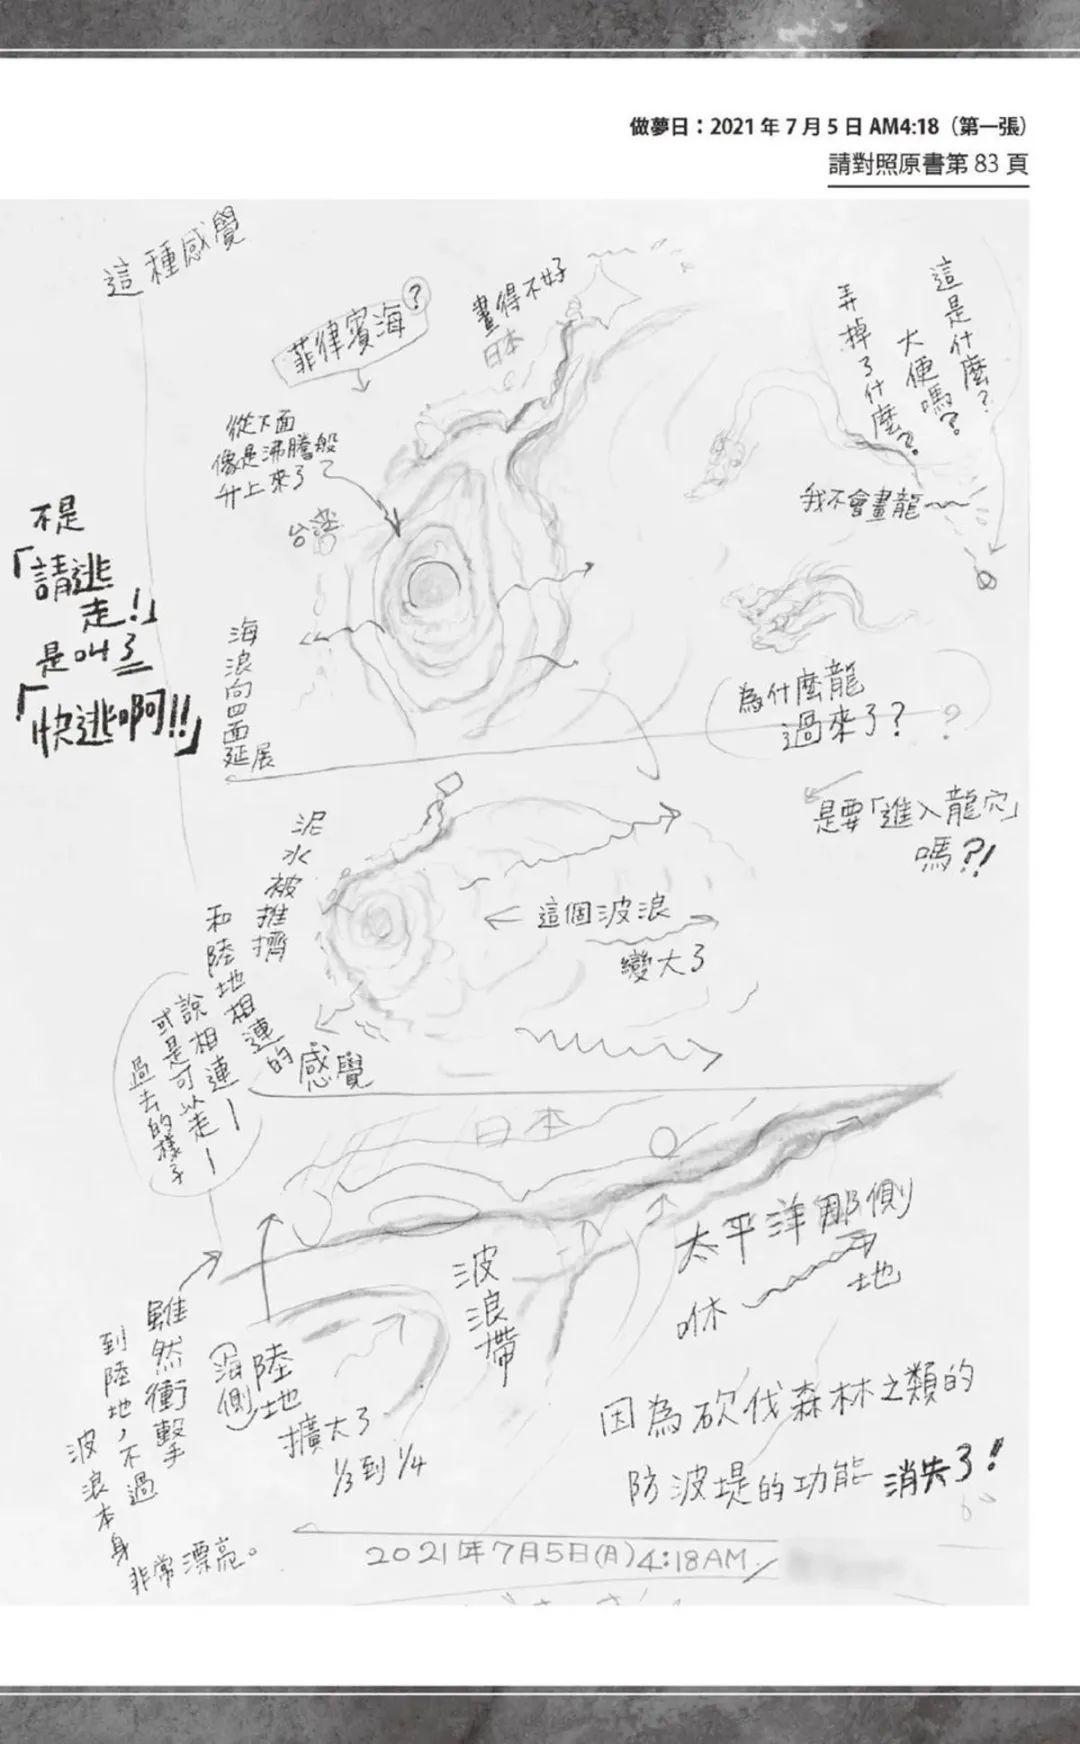 做夢日：2021 年 7 月 5 日 AM4:18（第一張）
請對照原書第 83 頁
這種感覺
菲律賓海?
畫得不好
日本
從下面
像是沸騰般
升上來了
台灣
這是什麼?
大便嗎?
弄掉了什麼?
我不會畫龍
不是
「請逃
走!」
是叫了
「快逃啊!!」
海浪向四面
延展
為什麼龍
過來了?
?
是要「進入龍穴」
嗎?!
泥水被推擠
和陸地相連的
感覺
說相連
或是可以走
過去的樣子
這個波浪
變大了
日本
太平洋那側
地
咻
波浪帶
陸地
(沿側)
擴大了
1/3到1/4
雖然衝擊
到陸地，不過
波浪本身
非常漂亮。
因為砍伐森林之類的
防波堤的功能 消失了!
2021年7月5日(月)4:18AM